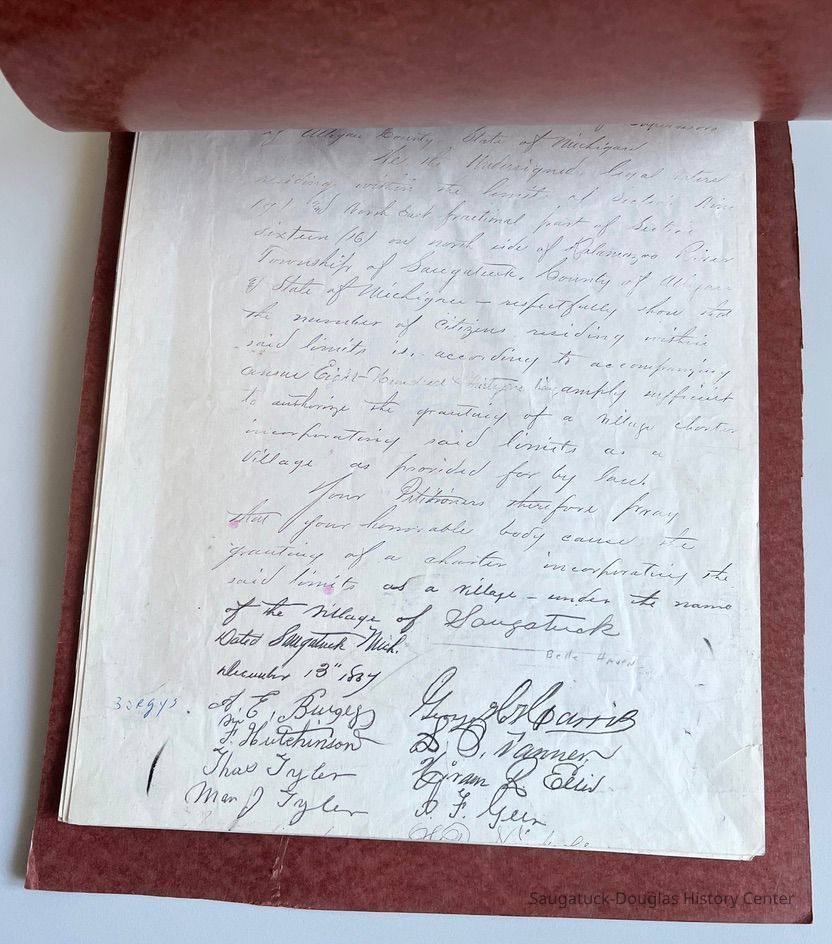 of Allegan County, State of Michigan
We the Undersigned, legal voters
residing within the limits of Section Nine
(9) and North East fractional part of Section
sixteen (16) on north side of Kalamazoo River
Township of Saugatuck, County of Allegan
& State of Michigan – respectfully show that
the number of citizens residing within
said limits is, according to accompanying
census Eight Hundred & amply sufficient
to authorize the granting of a village charter
incorporating said limits as a
village as provided for by law.
Your Petitioners therefore pray
that your honorable body cause the
granting of a charter incorporating the
said limits as a village – under the name
of the village of Saugatuck
Dated Saugatuck Mich.
Belle Haven
December 13"
3 sRgys
A. E. Burgess
F. Hutchinson
Thas Tyler
Man J Tyler
Harris
D. D. Tanner
Hiram R Ellis
F. Geer
Saugatuck-Douglas History Center